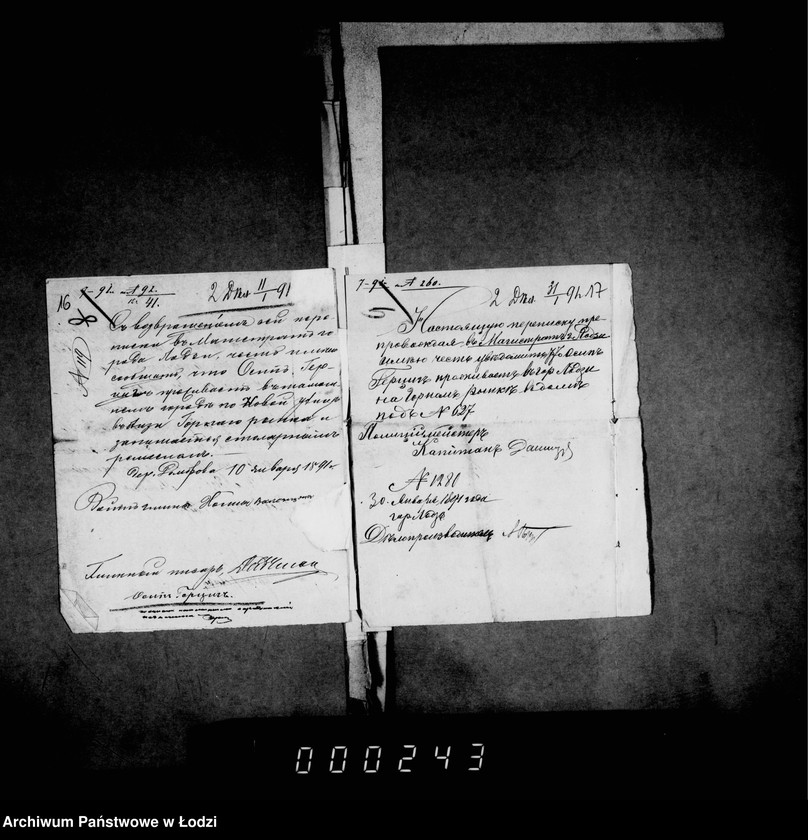 16
2 Дѣл 11/I 91
Съ возвращеніемъ сей пере-
писки въ Магистратъ го-
рода Лодзи, честь имѣю
сообщить, что Осипъ Гер-
цигъ проживаетъ въ
городѣ по Новой улицѣ
вблизи Горнаго рынка и
занимается столярнымъ
ремесломъ.
10 Января 1891 г.
Войтъ гмины
Гминный писарь
Осипъ Герцигъ
№ 260.
2 Дѣл. 31/I 91 17
Настоящую переписку пре-
провождая въ Магистратъ г. Лодзи
имѣю честь увѣдомить, что Осипъ
Герцигъ проживаетъ въ гор. Лодзи
на Горномъ рынкѣ въ домѣ
подъ № 627
Полиціймейстеръ
Капитанъ
№ 1280
30 Января 1891 года
гор. Лодзь
Дѣлопроизводитель
000243
Archiwum Państwowe w Łodzi